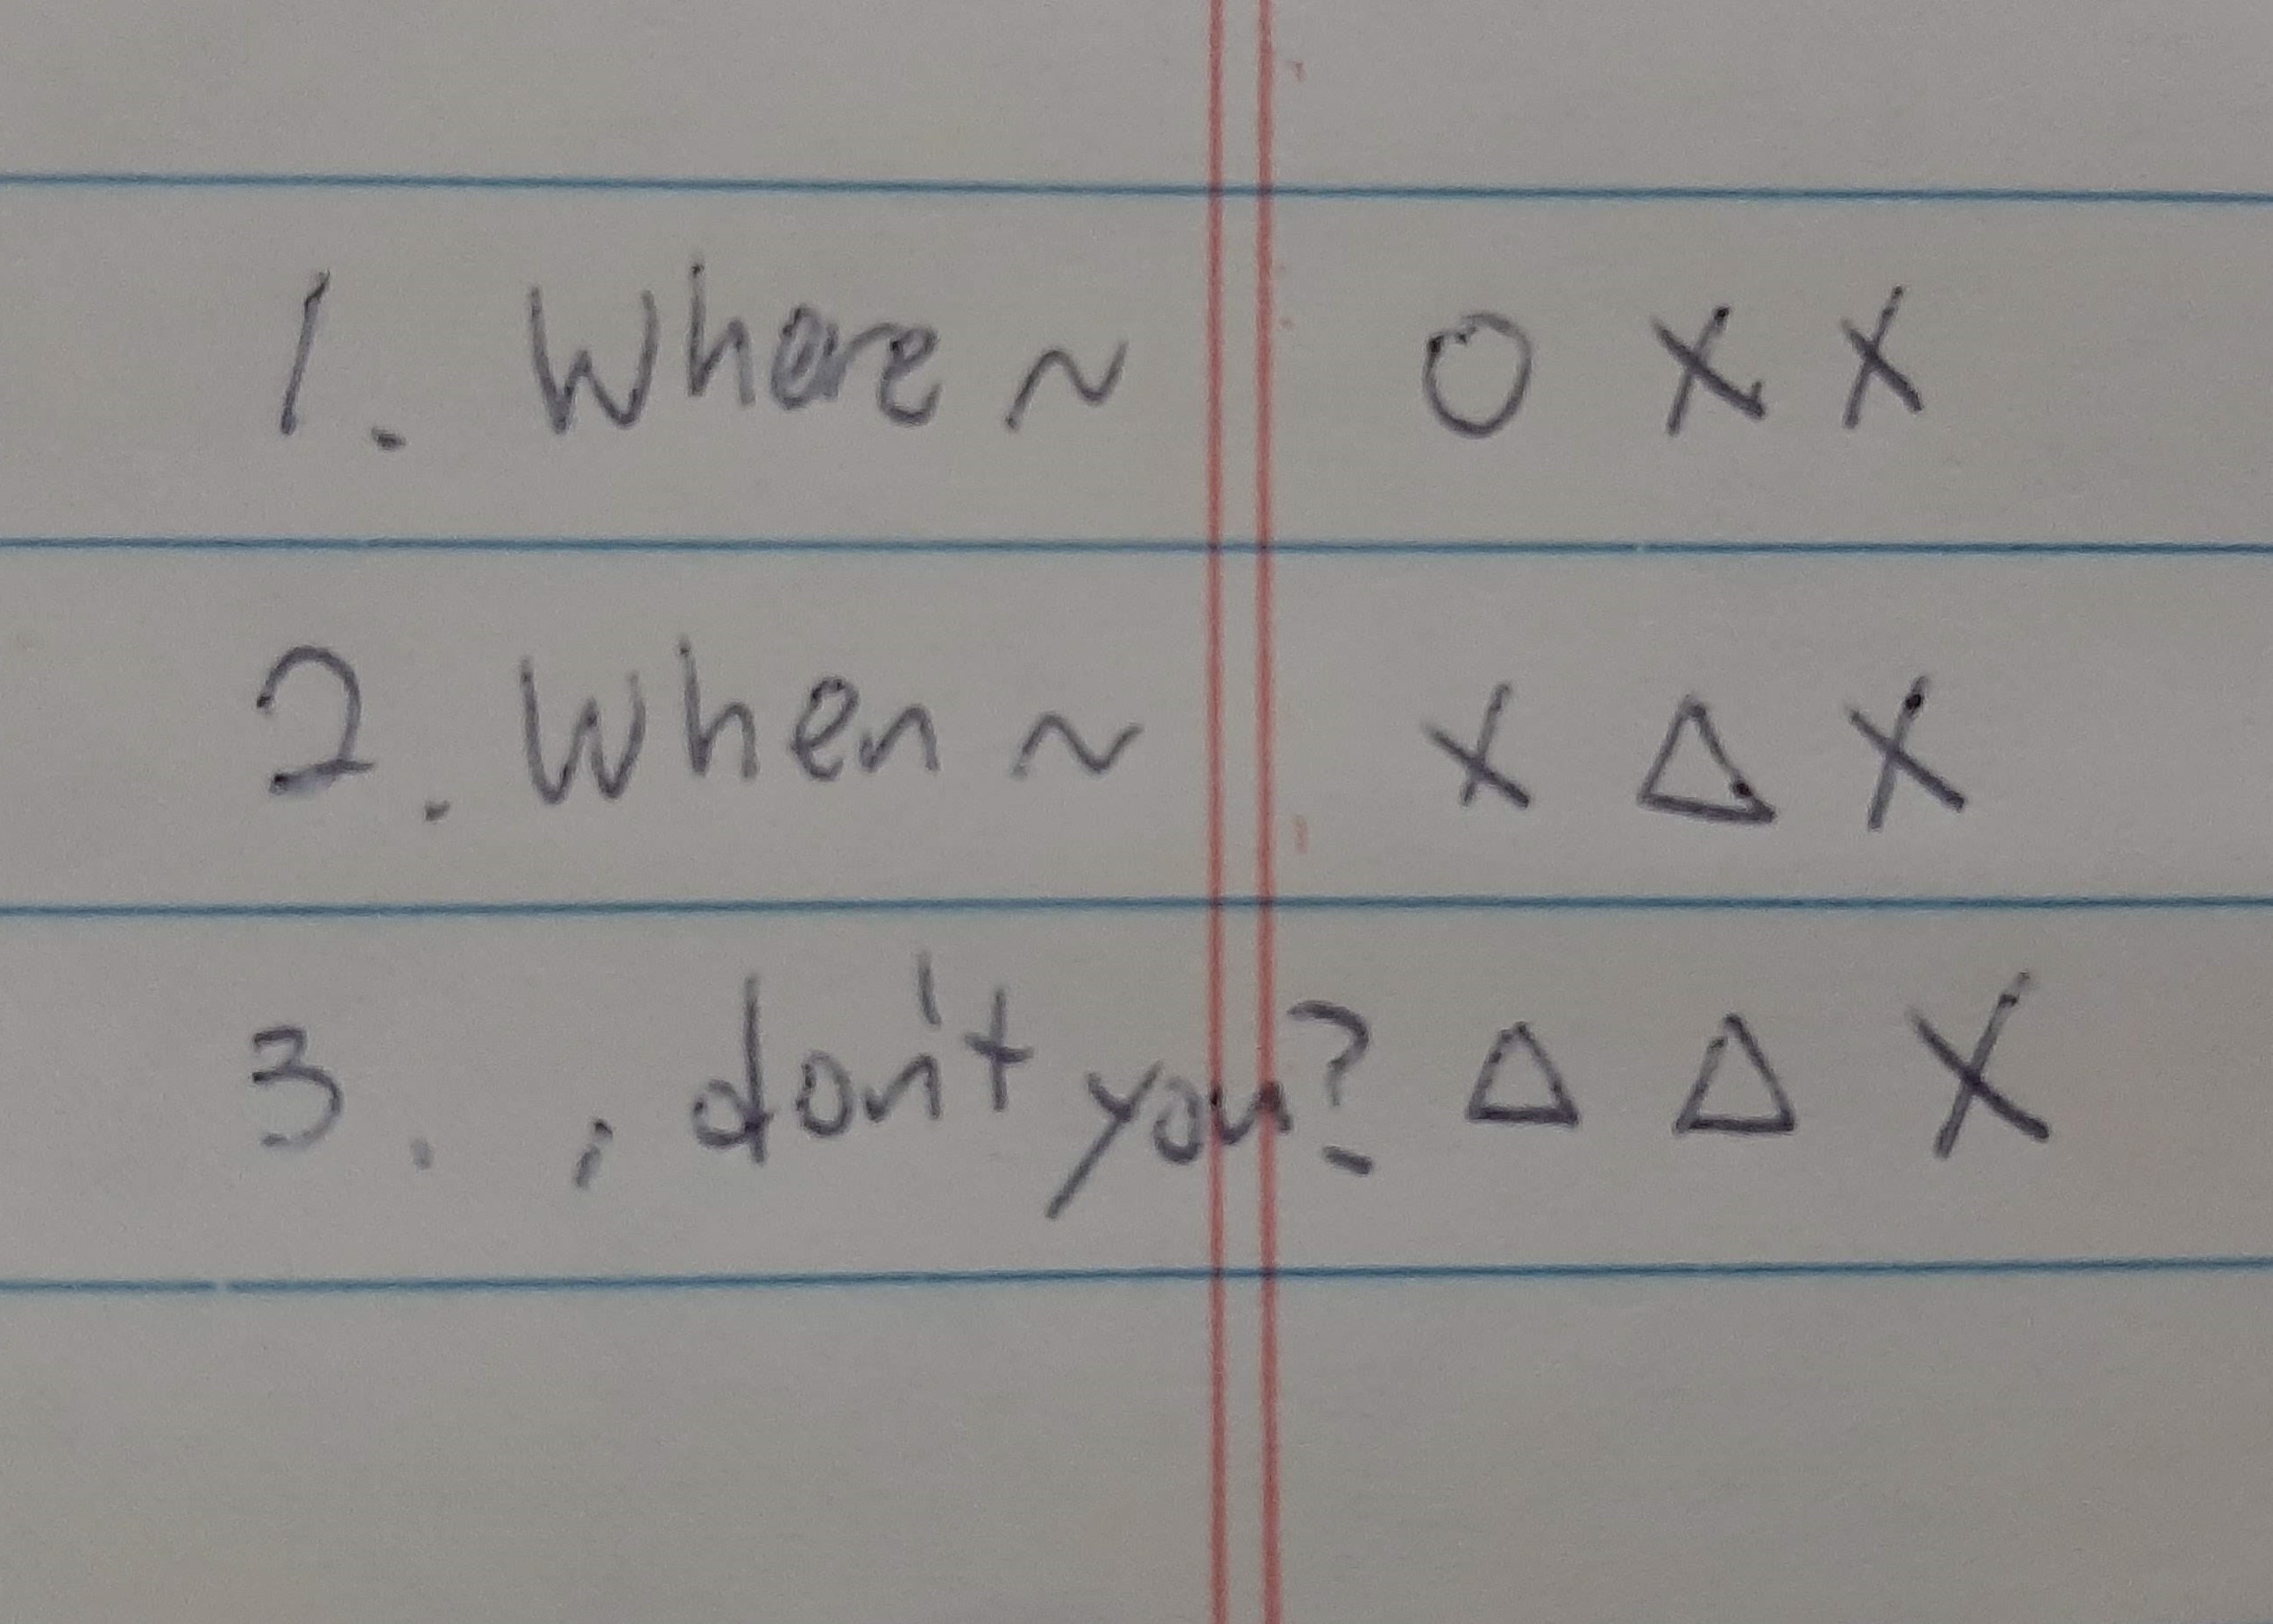 1. Where ~ O X X
2. When ~ X △ X
3. , don't you? △ △ X